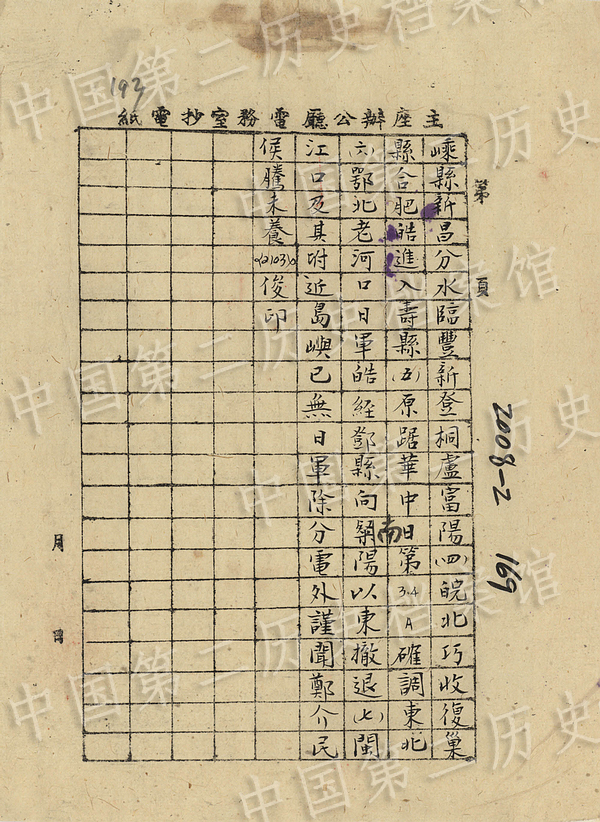 193
主座辦公廳電務室抄電紙
第 頁
嵊縣新昌分水臨豐新登桐盧富陽(四)皖北巧收復巢
縣合肥皓進入壽縣(五)原踞華中日第3.4A確調東北
(六)鄂北老河口日軍皓經鄧縣向南陽以東撤退(七)閩
江口及其坿近島嶼已無日軍除分電外謹聞鄭介民
侯騰未養 俊印
月 日
2008-2 169
中国第二历史档案馆